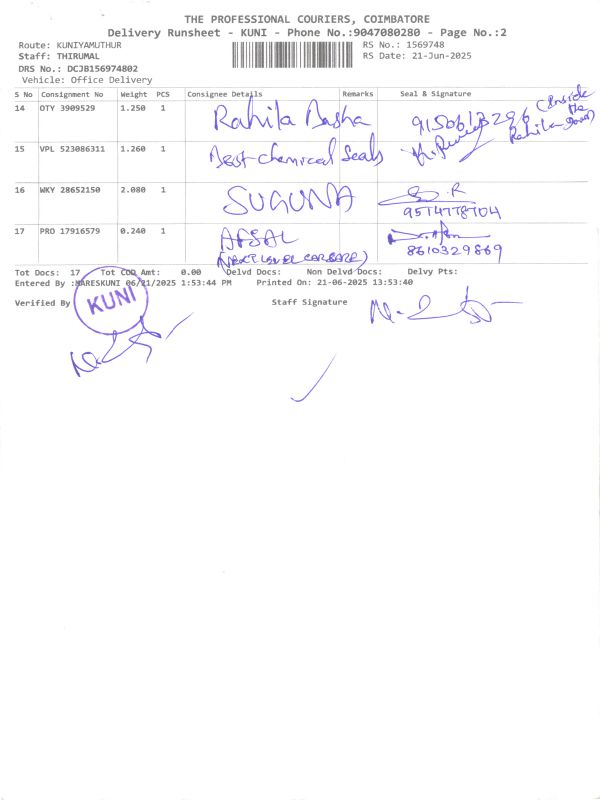 THE PROFESSIONAL COURIERS, COIMBATORE
Delivery Runsheet - KUNI - Phone No.:9047080280 - Page No.:2
Route: KUNIYAMUTHUR RS No.: 1569748
Staff: THIRUMAL RS Date: 21-Jun-2025
DRS No.: DCJB156974802
Vehicle: Office Delivery
S No Consignment No Weight PCS Consignee Details Remarks Seal & Signature
14 OTY 3909529 1.250 1 Rahila Basha (Inside the Rahila
15 VPL 523086311 1.260 1 Best chemical Seals
16 WKY 28652150 2.080 1 SUGUNA
17 PRO 17916579 0.240 1 AFSAL 8610329869
(NEXT LEVEL CAR CARE)
Tot Docs: 17 Tot COD Amt: 0.00 Delvd Docs: Non Delvd Docs: Delvy Pts:
Entered By :NARESKUNI 06/21/2025 1:53:44 PM Printed On: 21-06-2025 13:53:40
Verified By KUNI Staff Signature